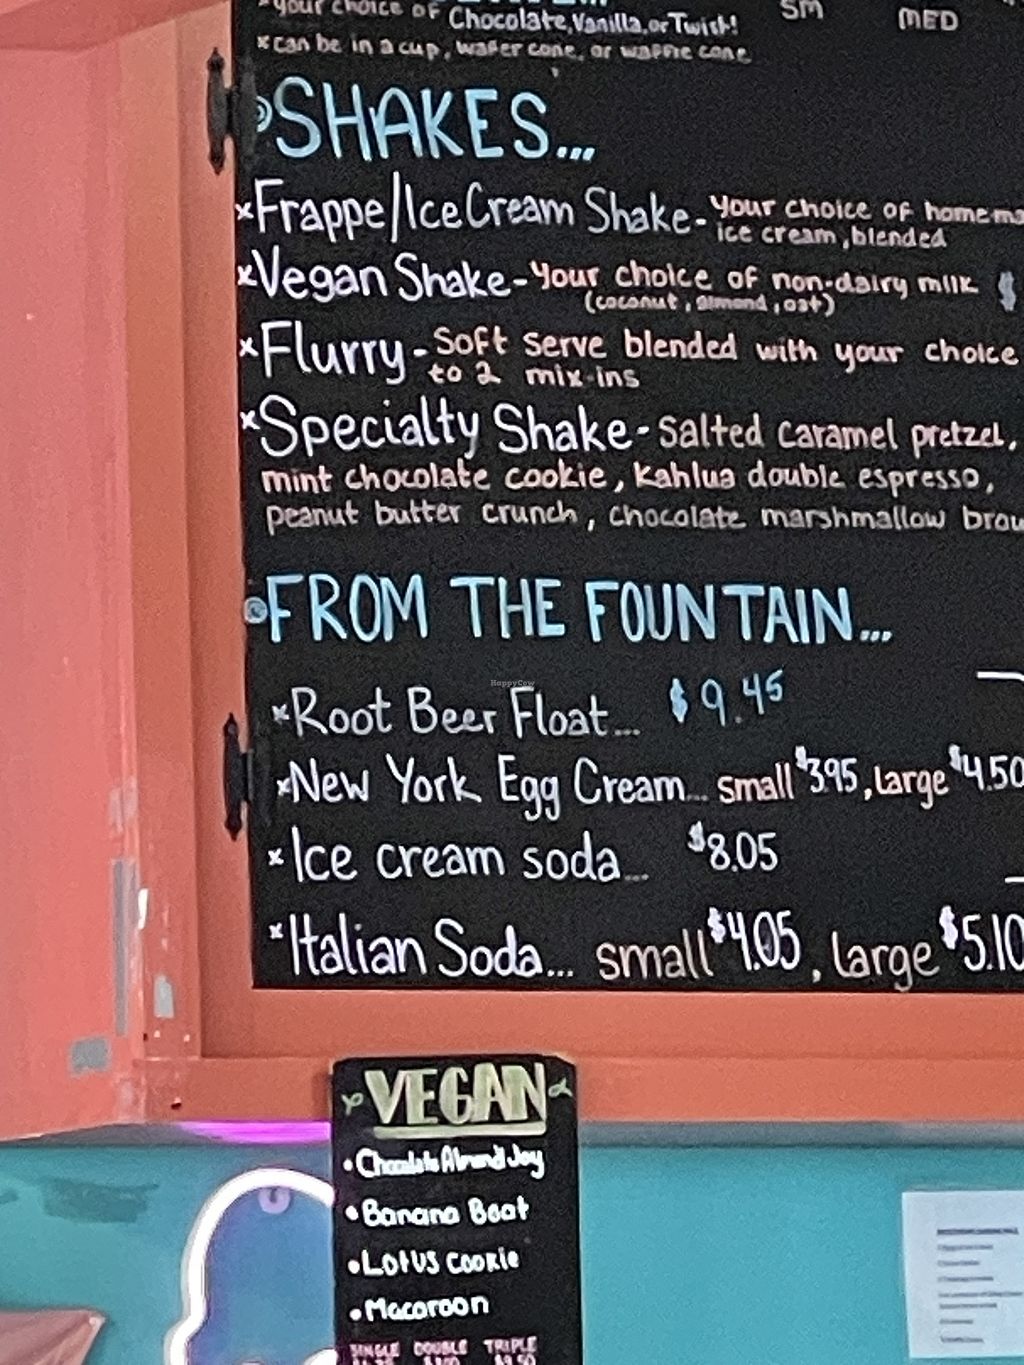 *your choice of Chocolate, Vanilla, or Twist!
SM MED
*can be in a cup, wafer cone, or waffle cone
SHAKES...
*Frappe/Ice Cream Shake - your choice of
ice cream, blended
*Vegan Shake - Your choice of non-dairy milk $
(coconut, almond, oat)
*Flurry - Soft serve blended with your choice
to 2 mix-ins
*Specialty Shake - Salted caramel pretzel,
mint chocolate cookie, Kahlua double espresso,
peanut butter crunch, chocolate marshmallow
FROM THE FOUNTAIN...
HappyCow
*Root Beer Float... $9.45
*New York Egg Cream... small $3.95, large $4.50
*Ice cream soda... $8.05
*Italian Soda... small $4.05, large $5.10
VEGAN
•Chocolate Almond Joy
•Banana Boat
•Lotus Cookie
•Macaroon
SINGLE DOUBLE TRIPLE